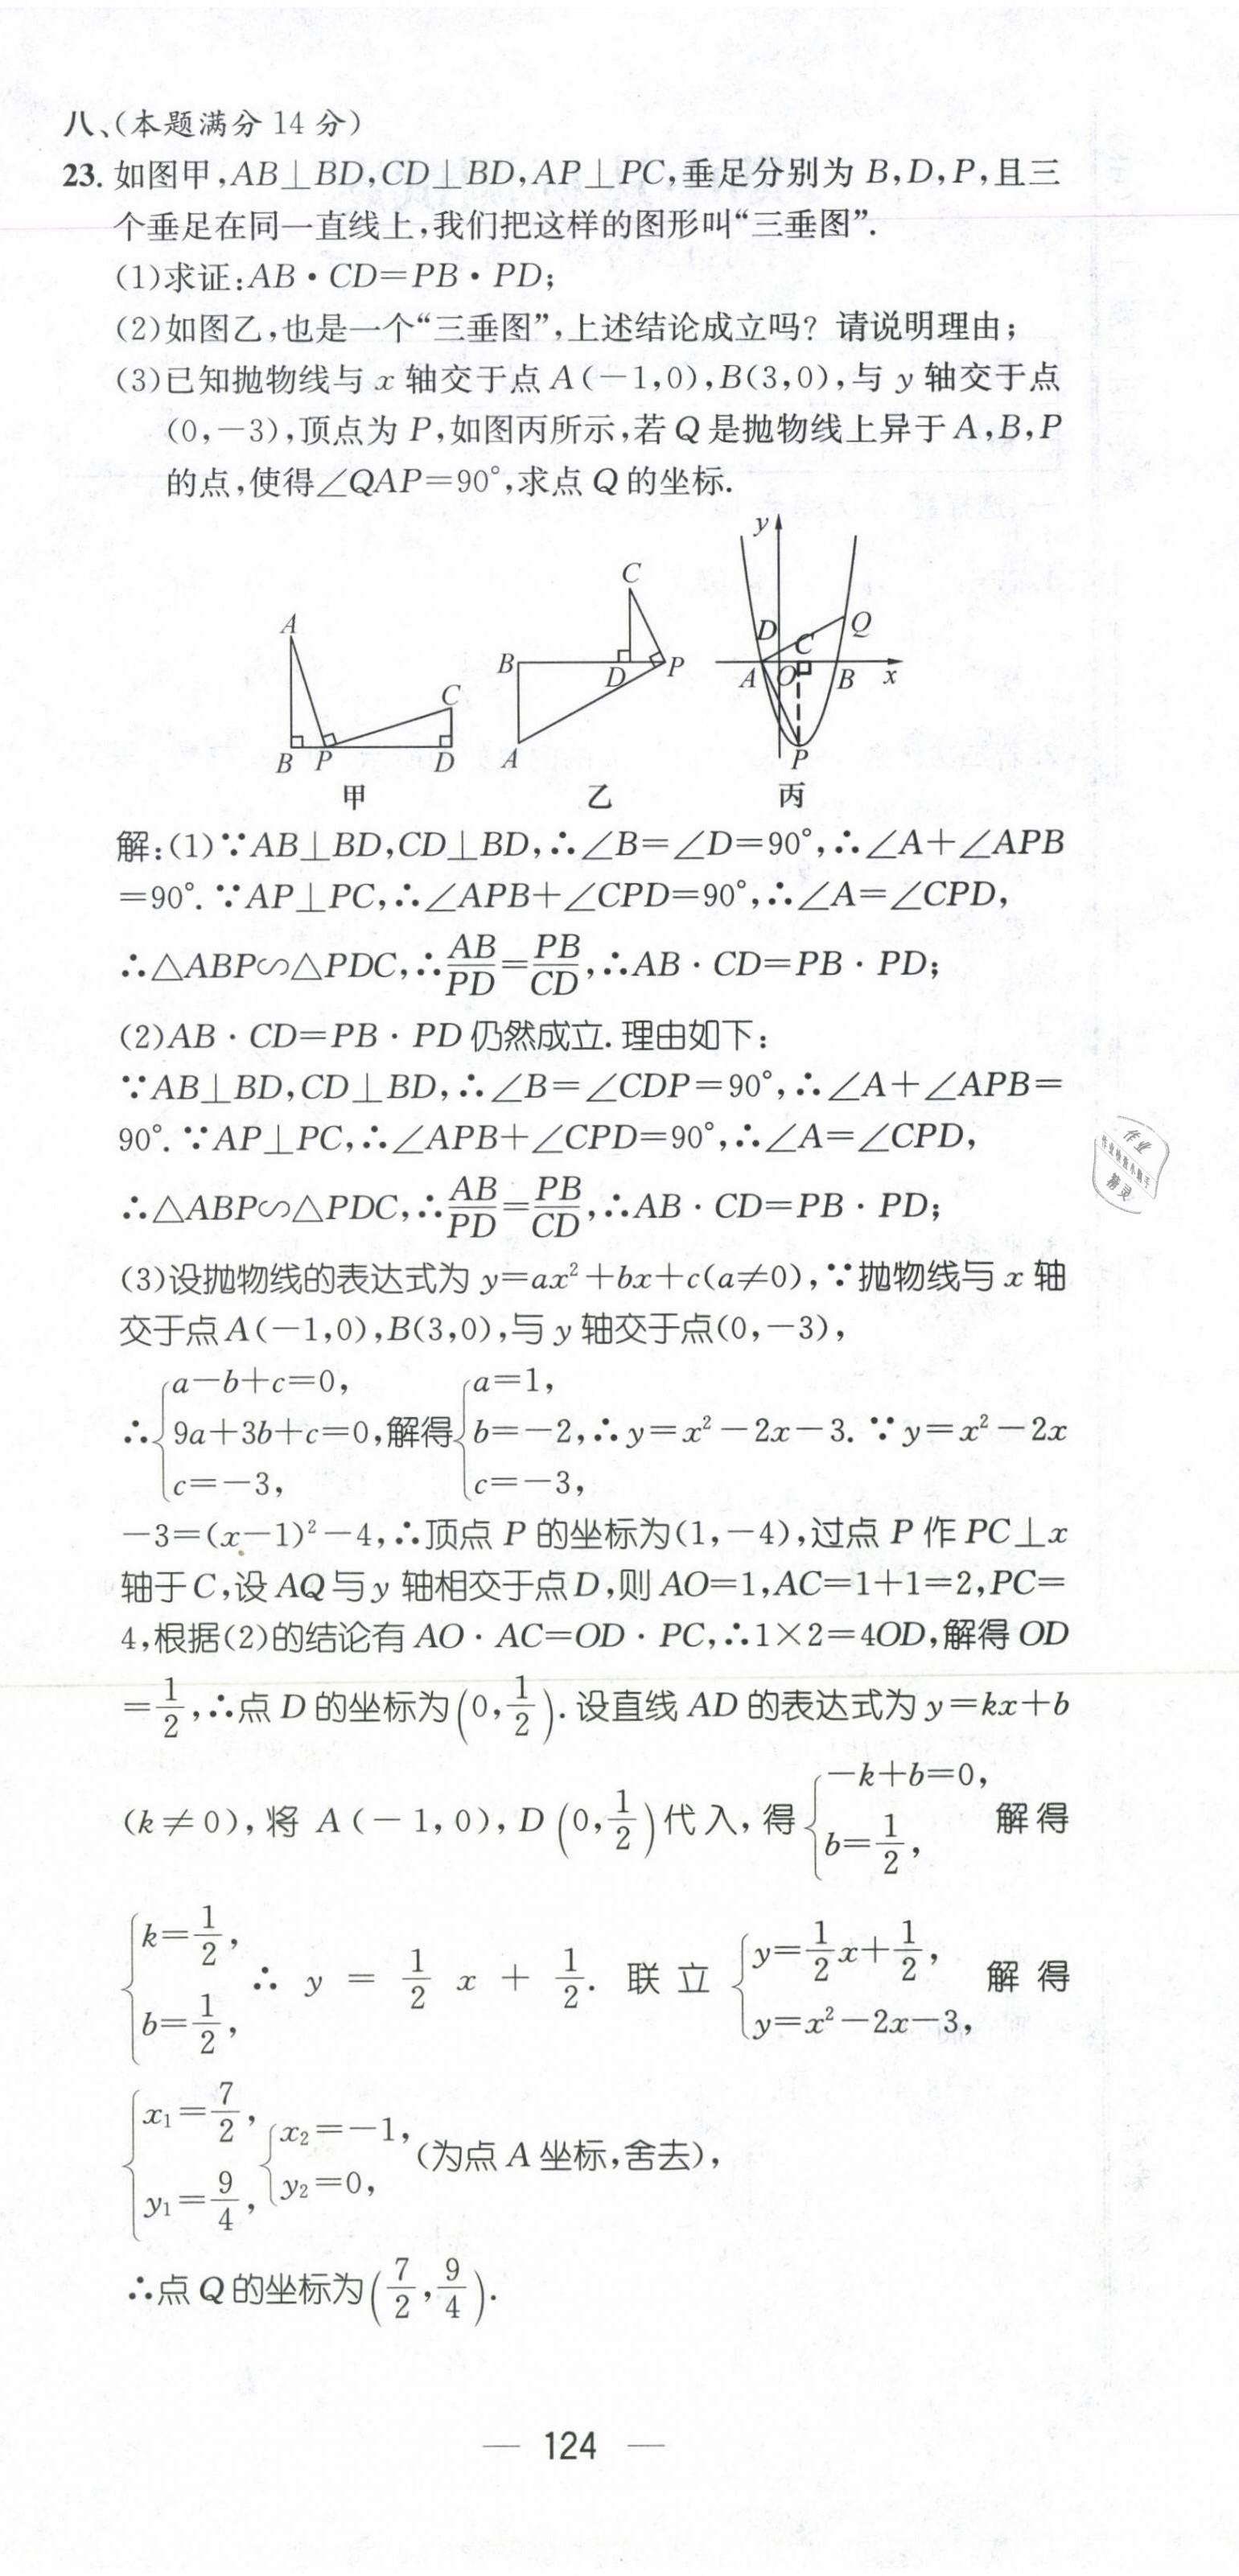 八、(本题满分 14 分)
23. 如图甲,AB⊥BD,CD⊥BD,AP⊥PC,垂足分别为 B,D,P,且三
个垂足在同一直线上,我们把这样的图形叫“三垂图”.
(1)求证:AB·CD=PB·PD;
(2)如图乙,也是一个“三垂图”,上述结论成立吗? 请说明理由;
(3)已知抛物线与 x 轴交于点 A(-1,0),B(3,0),与 y 轴交于点
(0,-3),顶点为 P,如图丙所示,若 Q 是抛物线上异于 A,B,P
的点,使得∠QAP=90°,求点 Q 的坐标.
A
C
B P D
甲
C
B D P
A
乙
y
D C Q
A O B x
P
丙
解:(1)∵AB⊥BD,CD⊥BD,∴∠B=∠D=90°,∴∠A+∠APB
=90°.∵AP⊥PC,∴∠APB+∠CPD=90°,∴∠A=∠CPD,
∴△ABP∽△PDC,∴AB/PD=PB/CD,∴AB·CD=PB·PD;
(2)AB·CD=PB·PD 仍然成立.理由如下:
∵AB⊥BD,CD⊥BD,∴∠B=∠CDP=90°,∴∠A+∠APB=
90°.∵AP⊥PC,∴∠APB+∠CPD=90°,∴∠A=∠CPD,
∴△ABP∽△PDC,∴AB/PD=PB/CD,∴AB·CD=PB·PD;
(3)设抛物线的表达式为 y=ax²+bx+c(a≠0),∵抛物线与 x 轴
交于点 A(-1,0),B(3,0),与 y 轴交于点(0,-3),
∴{a-b+c=0, 9a+3b+c=0, c=-3, 解得{a=1, b=-2, c=-3, ∴y=x²-2x-3.∵y=x²-2x
-3=(x-1)²-4,∴顶点 P 的坐标为(1,-4),过点 P 作 PC⊥x
轴于 C,设 AQ 与 y 轴相交于点 D,则 AO=1,AC=1+1=2,PC=
4,根据(2)的结论有 AO·AC=OD·PC,∴1×2=4OD,解得 OD
=1/2,∴点 D 的坐标为(0,1/2).设直线 AD 的表达式为 y=kx+b
(k≠0),将 A(-1,0),D(0,1/2)代入,得{-k+b=0, b=1/2, 解得
{k=1/2, b=1/2, ∴y=1/2x+1/2.联立{y=1/2x+1/2, y=x²-2x-3, 解得
{x₁=7/2, y₁=9/4, {x₂=-1, y₂=0, (为点 A 坐标,舍去),
∴点 Q 的坐标为(7/2,9/4).
作业
精灵
— 124 —